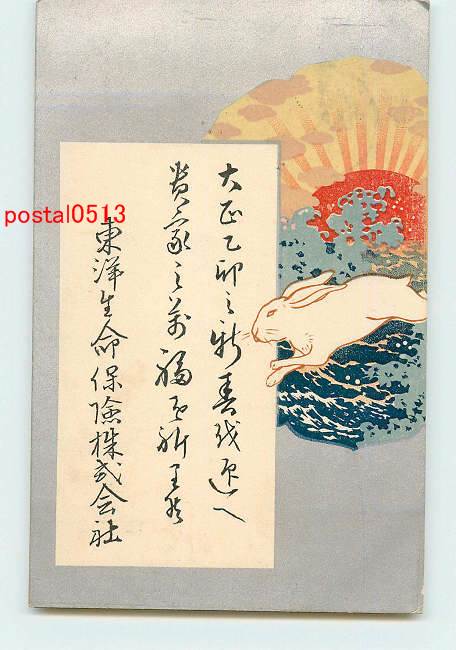 大正乙卯之新春を迎へ
貴家之萬福を祈り候
東洋生命保険株式会社
postal0513